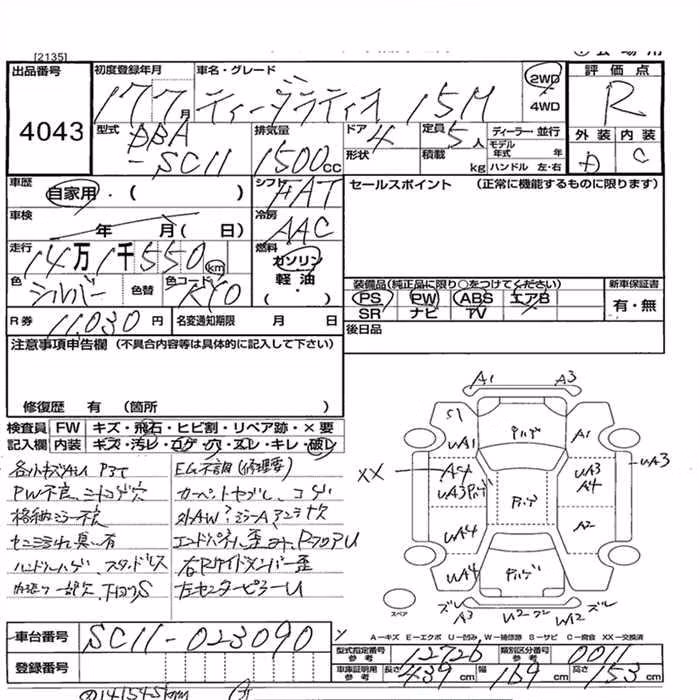 [2135]
出品番号
4043
初度登録年月
17 7月
車名・グレード
ティーダラティオ 15M
2WD
4WD
評価点
R
外装 内装
D C
型式
DBA
-SC11
排気量
1500cc
ドア
4
形状
定員
5人
積載
kg
ディーラー・並行
モデル
年式 年
ハンドル 左・右
車歴
自家用・( )
シフト
FAT
セールスポイント (正常に機能するものに限ります)
車検
年 月( 日)
冷房
AAC
走行
14万1千550km
燃料
ガソリン
軽油
色
シルバー
色替
色コード
KY0
装備品(純正品に限り○をつけてください)
PS PW ABS エアB
SR ナビ TV
新車保証書
有・無
R券 11,030円
名変通知期限 月 日
後日品
注意事項申告欄 (不具合内容等は具体的に記入して下さい)
修復歴 有 (箇所 )
検査員 FW キズ・飛石・ヒビ割・リペア跡・×要
記入欄 内装 キズ・汚レ・コゲ・穴・スレ・キレ・破レ
各小キズAU P3て
EG不調(修理要)
PW不良、シートコゲ穴
カーペットヤブレ、コゲ
格納ミラー不良
セニ汚れ臭い有
エンドパネル歪み、RフロアU
ハンドルハゲ、スタッドレス
右Rサイドメンバー歪
左センターピラーU
A1 A3
S1
UA1
ハゲ
A1
XX
A4
UA3
ハゲ
UA3
A4
UA3
UA4
A2
UA4
ハゲ
スペア
ズレ
A3
U2
W12
ズレ
A-キズ E-エクボ U-凹み W-補修跡 S-サビ C-腐食 XX-交換済
車台番号
SC11-023090
登録番号
型式指定番号
参考
12726
類別区分番号
参考
0011
車庫証明用
参考
長さ 439cm
幅 169cm
高さ 153cm